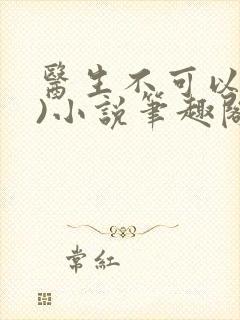 醫生不可以
)小說筆趣閣
常紅